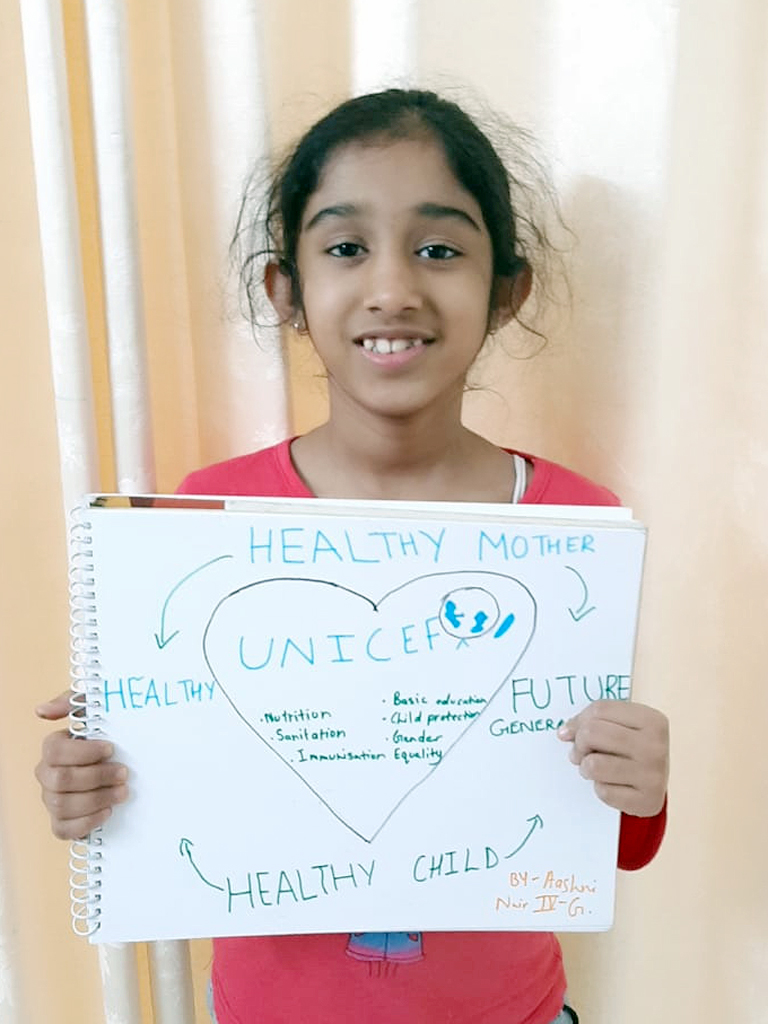 HEALTHY MOTHER
UNICEF
HEALTHY
FUTURE
GENERA
. Nutrition
. Sanitation
. Immunisation
. Basic education
. Child protection
. Gender
Equality
HEALTHY CHILD
BY- Aashni
Nair IV-G.